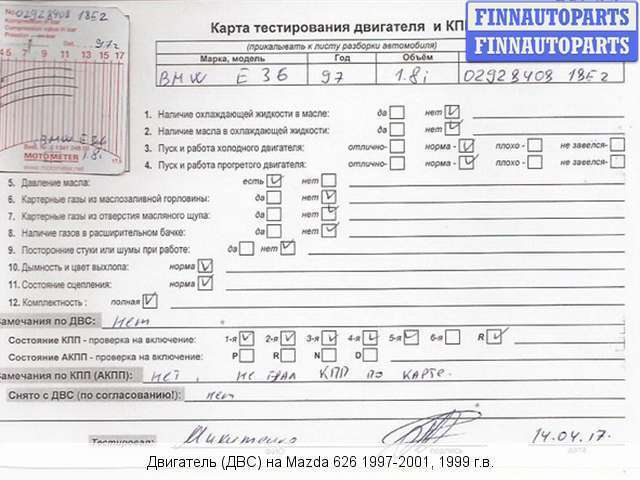 No 02928408 18E2
Compression value in bar
Pression en bar
Dat. 97г
4 5 6 7 8 9 11 13 15 17
BMW E36
1.8i
MOTOMETER
www.motometer.net
FINNAUTOPARTS
FINNAUTOPARTS
Карта тестирования двигателя и КПП
(прикалывать к листу разборки автомобиля)
Марка, модель Год Объём
BMW E 36 97 1.8i 02928408 18E2
1. Наличие охлаждающей жидкости в масле: да нет
2. Наличие масла в охлаждающей жидкости: да нет
3. Пуск и работа холодного двигателя: отлично- норма - плохо - не завелся-
4. Пуск и работа прогретого двигателя: отлично- норма - плохо - не завелся-
5. Давление масла: есть нет
6. Картерные газы из маслозаливной горловины: да нет
7. Картерные газы из отверстия масляного щупа: да нет
8. Наличие газов в расширительном бачке: да нет
9. Посторонние стуки или шумы при работе: да нет
10. Дымность и цвет выхлопа: норма
11. Состояние сцепления: норма
12. Комплектность : полная
Замечания по ДВС: нет
Состояние КПП - проверка на включение: 1-я 2-я 3-я 4-я 5-я 6-я R
Состояние АКПП - проверка на включение: P R N D
Замечания по КПП (АКПП): нет, не трал КПП по карте.
Снято с ДВС (по согласованию!): нет
Тестировал: Микитенко 14.04.17.
ФИО подпись
Двигатель (ДВС) на Mazda 626 1997-2001, 1999 г.в.